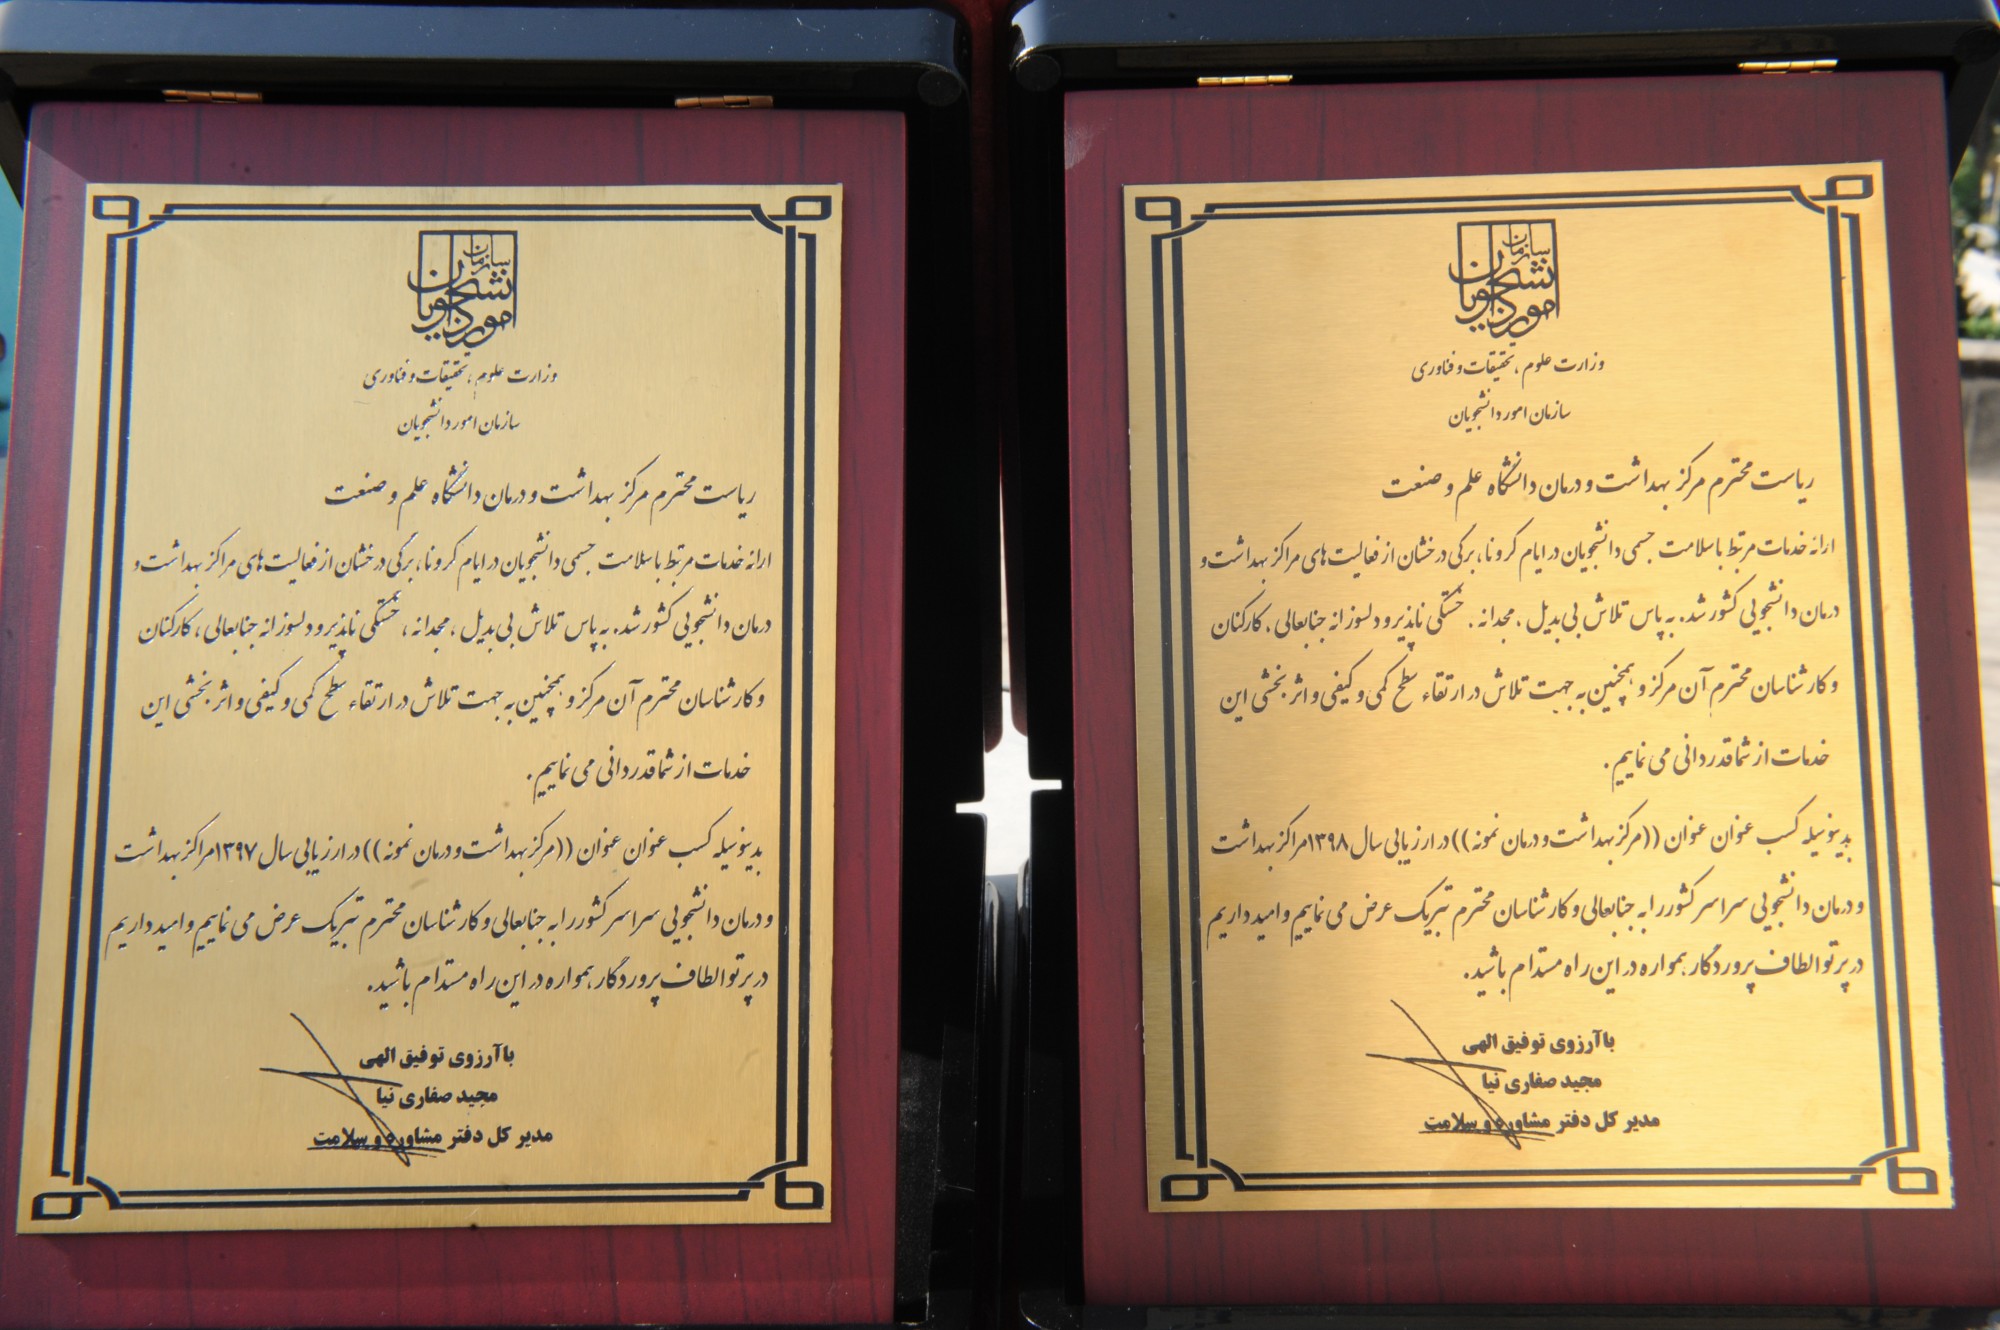 سازمان
امور دانشجویان
وزارت علوم، تحقیقات و فناوری
سازمان امور دانشجویان
ریاست محترم مرکز بهداشت و درمان دانشگاه علم و صنعت
ارائه خدمات مرتبط با سلامت جسمی دانشجویان در ایام کرونا، برگی درخشان از فعالیت های مراکز بهداشت و
درمان دانشجویی کشور شد. به پاس تلاش بی بدیل، مجدانه، خستگی ناپذیر و دلسوزانه جنابعالی، کارکنان
و کارشناسان محترم آن مرکز و همچنین به جهت تلاش در ارتقاء سطح کمی و کیفی و اثر بخشی این
خدمات از شما قدردانی می نماییم.
بدینوسیله کسب عنوان عنوان ((مرکز بهداشت و درمان نمونه)) در ارزیابی سال ۱۳۹۷ مراکز بهداشت
و درمان دانشجویی سراسر کشور را به جنابعالی و کارشناسان محترم تبریک عرض می نماییم و امید داریم
در پرتو الطاف پروردگار، همواره در این راه مستدام باشید.
با آرزوی توفیق الهی
مجید صفاری نیا
مدیر کل دفتر مشاوره و سلامت
سازمان
امور دانشجویان
وزارت علوم، تحقیقات و فناوری
سازمان امور دانشجویان
ریاست محترم مرکز بهداشت و درمان دانشگاه علم و صنعت
ارائه خدمات مرتبط با سلامت جسمی دانشجویان در ایام کرونا، برگی درخشان از فعالیت های مراکز بهداشت و
درمان دانشجویی کشور شد. به پاس تلاش بی بدیل، مجدانه، خستگی ناپذیر و دلسوزانه جنابعالی، کارکنان
و کارشناسان محترم آن مرکز و همچنین به جهت تلاش در ارتقاء سطح کمی و کیفی و اثر بخشی این
خدمات از شما قدردانی می نماییم.
بدینوسیله کسب عنوان عنوان ((مرکز بهداشت و درمان نمونه)) در ارزیابی سال ۱۳۹۸ مراکز بهداشت
و درمان دانشجویی سراسر کشور را به جنابعالی و کارشناسان محترم تبریک عرض می نماییم و امید داریم
در پرتو الطاف پروردگار، همواره در این راه مستدام باشید.
با آرزوی توفیق الهی
مجید صفاری نیا
مدیر کل دفتر مشاوره و سلامت